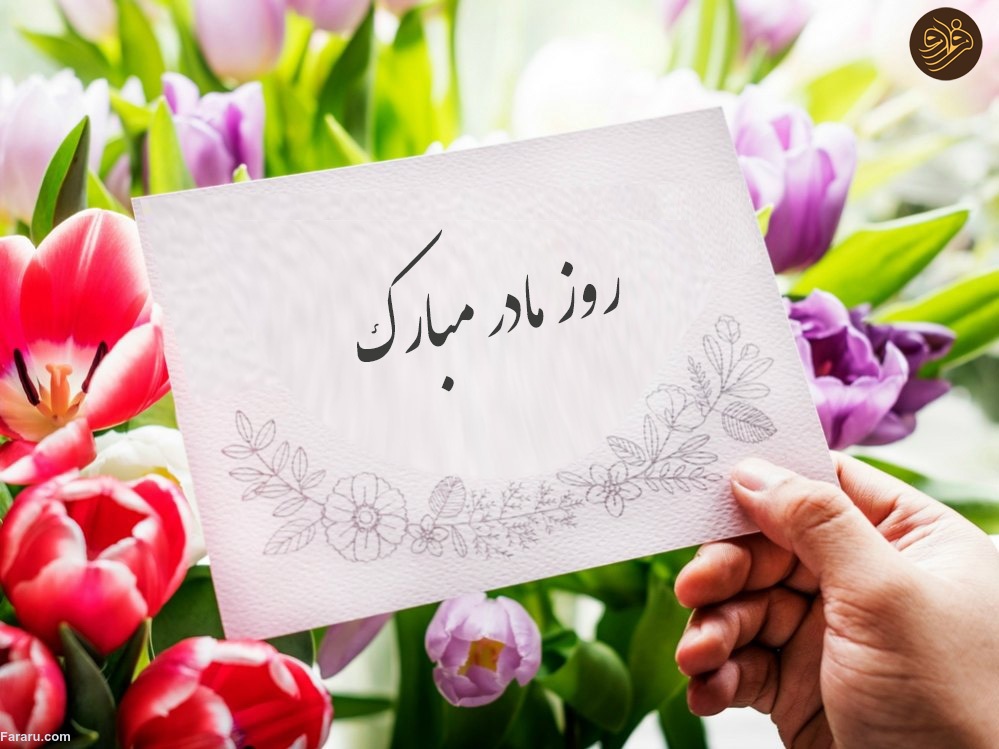 روز مادر مبارک
فرارو
Fararu.com